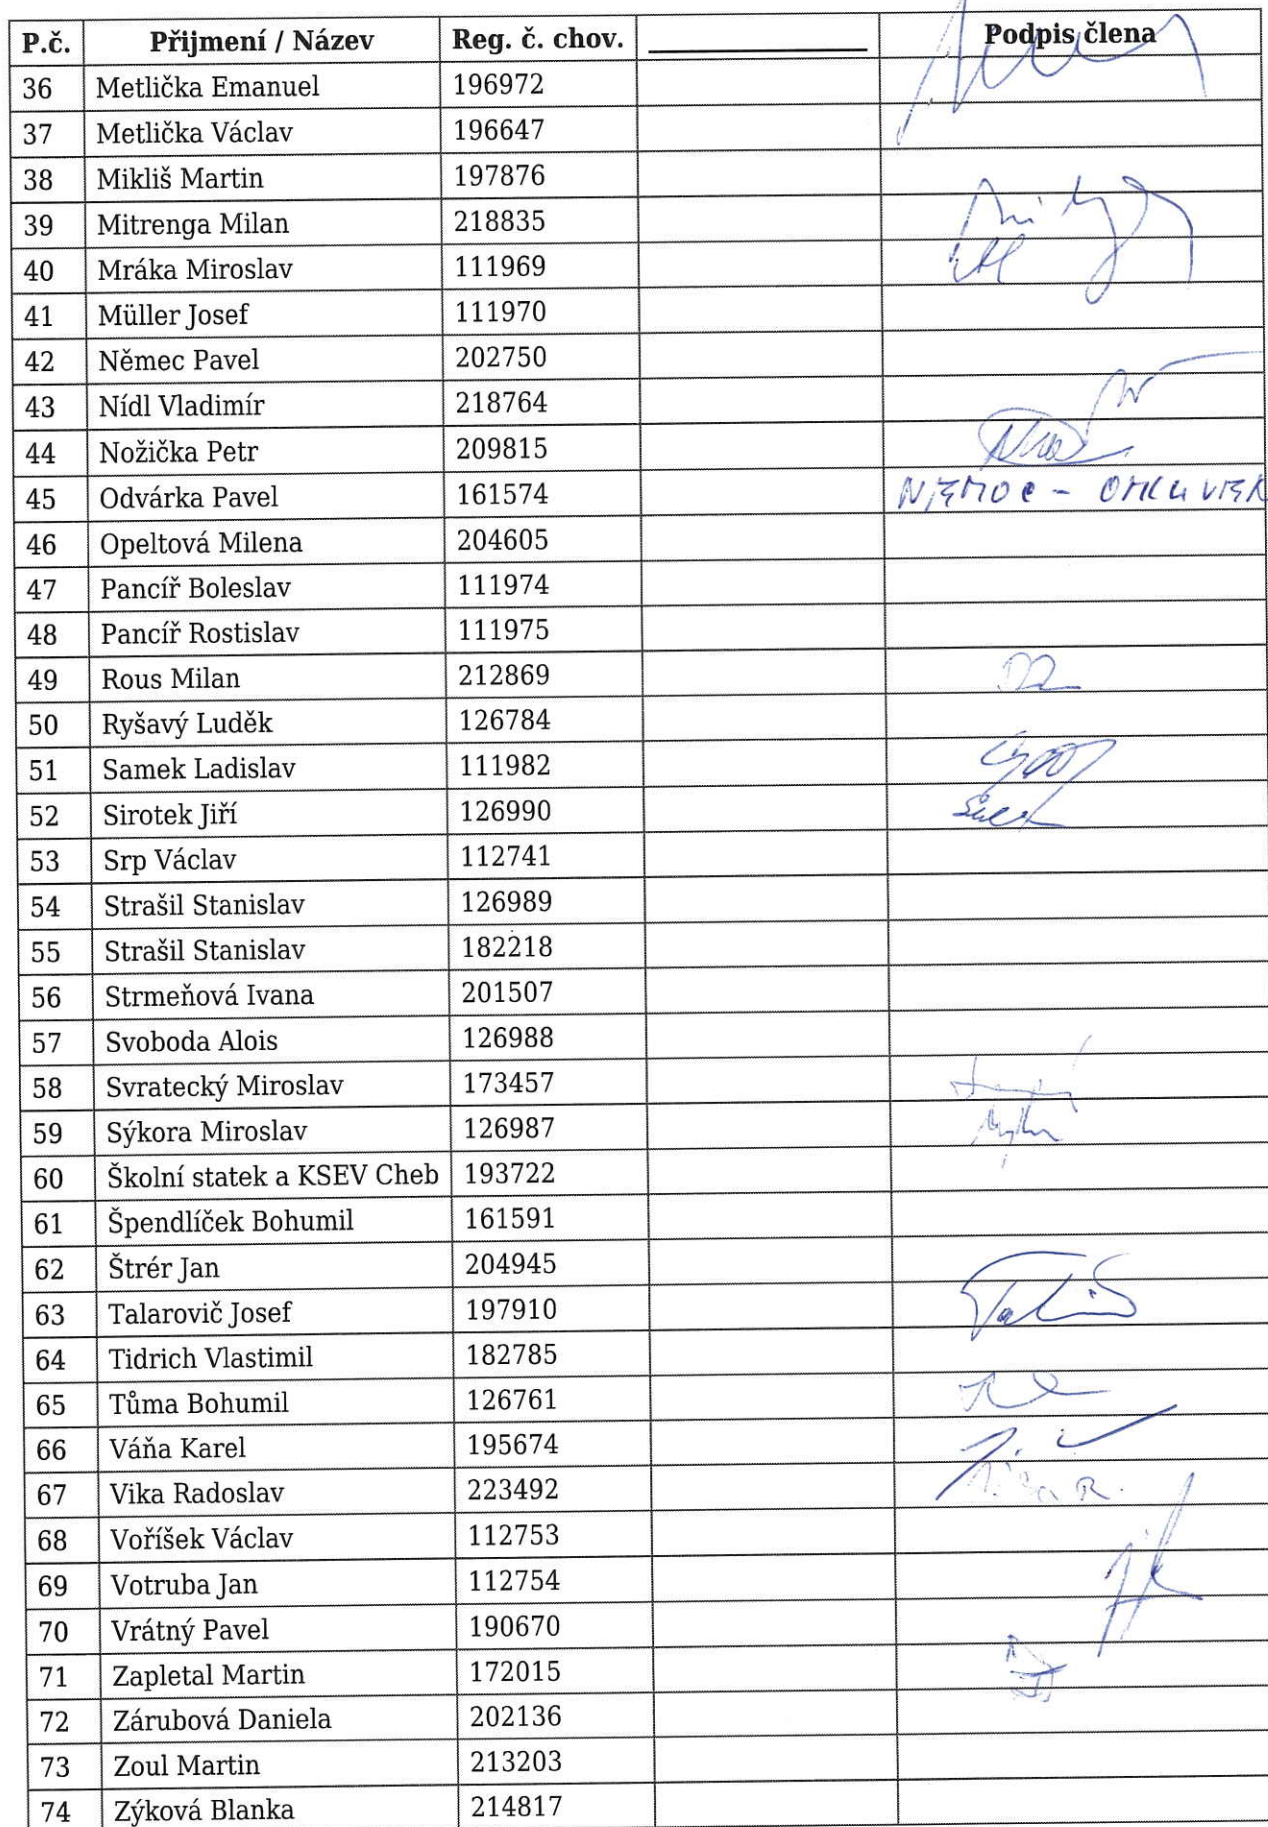 P.č. Přijmení / Název Reg. č. chov. Podpis člena
36 Metlička Emanuel 196972
37 Metlička Václav 196647
38 Mikliš Martin 197876
39 Mitrenga Milan 218835
40 Mráka Miroslav 111969
41 Müller Josef 111970
42 Němec Pavel 202750
43 Nídl Vladimír 218764
44 Nožička Petr 209815
45 Odvárka Pavel 161574
46 Opeltová Milena 204605
47 Pancíř Boleslav 111974
48 Pancíř Rostislav 111975
49 Rous Milan 212869
50 Ryšavý Luděk 126784
51 Samek Ladislav 111982
52 Sirotek Jiří 126990
53 Srp Václav 112741
54 Strašil Stanislav 126989
55 Strašil Stanislav 182218
56 Strmeňová Ivana 201507
57 Svoboda Alois 126988
58 Svratecký Miroslav 173457
59 Sýkora Miroslav 126987
60 Školní statek a KSEV Cheb 193722
61 Špendlíček Bohumil 161591
62 Štrér Jan 204945
63 Talarovič Josef 197910
64 Tidrich Vlastimil 182785
65 Tůma Bohumil 126761
66 Váňa Karel 195674
67 Vika Radoslav 223492
68 Voříšek Václav 112753
69 Votruba Jan 112754
70 Vrátný Pavel 190670
71 Zapletal Martin 172015
72 Zárubová Daniela 202136
73 Zoul Martin 213203
74 Zýková Blanka 214817